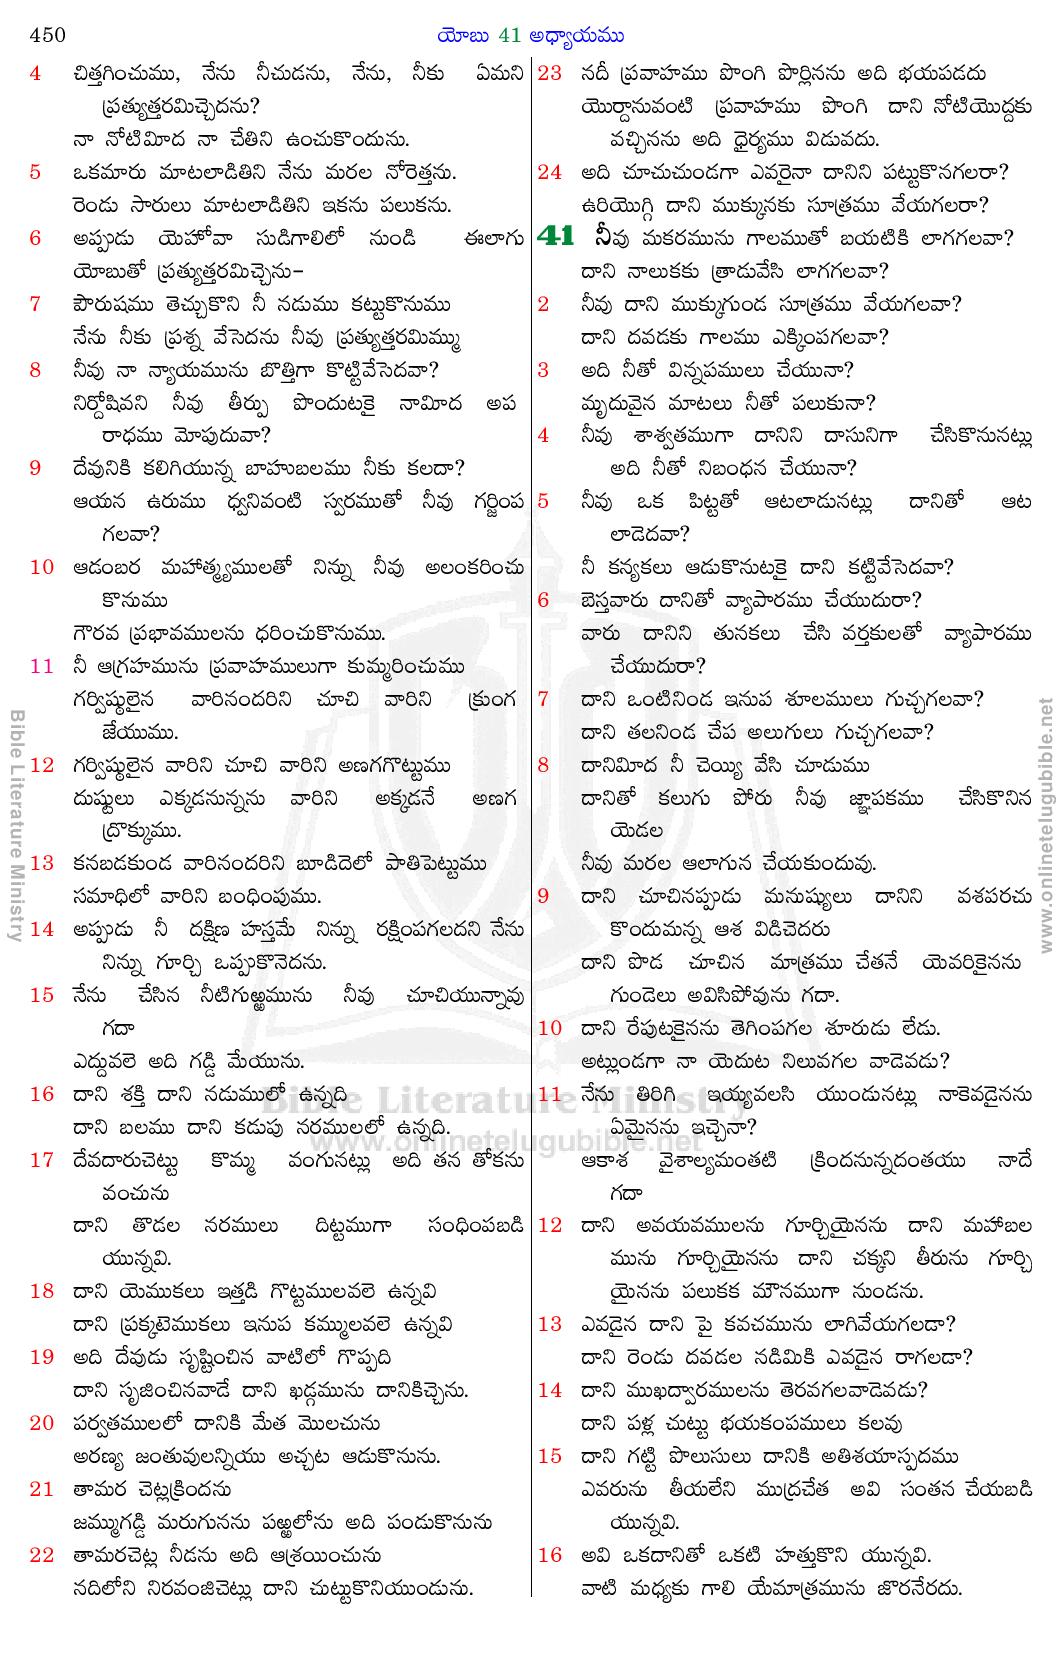 450
యోబు 41 అధ్యాయము
4 చిత్తగించుము, నేను నీచుడను, నేను, నీకు ఏమని
ప్రత్యుత్తరమిచ్చెదను?
నా నోటిమీద నా చేతిని ఉంచుకొందును.
5 ఒకమారు మాటలాడితిని నేను మరల నోరెత్తను.
రెండు సారులు మాటలాడితిని ఇకను పలుకను.
6 అప్పుడు యెహోవా సుడిగాలిలో నుండి ఈలాగు
యోబుతో ప్రత్యుత్తరమిచ్చెను–
7 పౌరుషము తెచ్చుకొని నీ నడుము కట్టుకొనుము
నేను నీకు ప్రశ్న వేసెదను నీవు ప్రత్యుత్తరమిమ్ము
8 నీవు నా న్యాయమును బొత్తిగా కొట్టివేసెదవా?
నిర్దోషివని నీవు తీర్పు పొందుటకై నామీద అప
రాధము మోపుదువా?
9 దేవునికి కలిగియున్న బాహుబలము నీకు కలదా?
ఆయన ఉరుము ధ్వనివంటి స్వరముతో నీవు గర్జింప
గలవా?
10 ఆడంబర మహాత్మ్యములతో నిన్ను నీవు అలంకరించు
కొనుము
గౌరవ ప్రభావములను ధరించుకొనుము.
11 నీ ఆగ్రహమును ప్రవాహములుగా కుమ్మరించుము
గర్విష్ఠులైన వారినందరిని చూచి వారిని క్రుంగ
జేయుము.
12 గర్విష్ఠులైన వారిని చూచి వారిని అణగగొట్టుము
దుష్టులు ఎక్కడనున్నను వారిని అక్కడనే అణగ
ద్రొక్కుము.
13 కనబడకుండ వారినందరిని బూడిదెలో పాతిపెట్టుము
సమాధిలో వారిని బంధింపుము.
14 అప్పుడు నీ దక్షిణ హస్తమే నిన్ను రక్షింపగలదని నేను
నిన్ను గూర్చి ఒప్పుకొనెదను.
15 నేను చేసిన నీటిగుఱ్ఱమును నీవు చూచియున్నావు
గదా
ఎద్దువలె అది గడ్డి మేయును.
16 దాని శక్తి దాని నడుములో ఉన్నది
దాని బలము దాని కడుపు నరములలో ఉన్నది.
17 దేవదారుచెట్టు కొమ్మ వంగునట్లు అది తన తోకను
వంచును
దాని తొడల నరములు దిట్టముగా సంధింపబడి
యున్నవి.
18 దాని యెముకలు ఇత్తడి గొట్టములవలె ఉన్నవి
దాని ప్రక్కటెముకలు ఇనుప కమ్ములవలె ఉన్నవి
19 అది దేవుడు సృష్టించిన వాటిలో గొప్పది
దాని సృజించినవాడే దాని ఖడ్గమును దానికిచ్చెను.
20 పర్వతములలో దానికి మేత మొలచును
అరణ్య జంతువులన్నియు అచ్చట ఆడుకొనును.
21 తామర చెట్లక్రిందను
జమ్ముగడ్డి మరుగునను పఱ్ఱలోను అది పండుకొనును
22 తామరచెట్ల నీడను అది ఆశ్రయించును
నదిలోని నిరవంజిచెట్లు దాని చుట్టుకొనియుండును.
23 నదీ ప్రవాహము పొంగి పొర్లినను అది భయపడదు
యొర్దానువంటి ప్రవాహము పొంగి దాని నోటియొద్దకు
వచ్చినను అది ధైర్యము విడువదు.
24 అది చూచుచుండగా ఎవరైనా దానిని పట్టుకొనగలరా?
ఉరియొగ్గి దాని ముక్కునకు సూత్రము వేయగలరా?
41 నీవు మకరమును గాలముతో బయటికి లాగగలవా?
దాని నాలుకకు త్రాడువేసి లాగగలవా?
2 నీవు దాని ముక్కుగుండ సూత్రము వేయగలవా?
దాని దవడకు గాలము ఎక్కింపగలవా?
3 అది నీతో విన్నపములు చేయునా?
మృదువైన మాటలు నీతో పలుకునా?
4 నీవు శాశ్వతముగా దానిని దాసునిగా చేసికొనునట్లు
అది నీతో నిబంధన చేయునా?
5 నీవు ఒక పిట్టతో ఆటలాడునట్లు దానితో ఆట
లాడెదవా?
నీ కన్యకలు ఆడుకొనుటకై దాని కట్టివేసెదవా?
6 బెస్తవారు దానితో వ్యాపారము చేయుదురా?
వారు దానిని తునకలు చేసి వర్తకులతో వ్యాపారము
చేయుదురా?
7 దాని ఒంటినిండ ఇనుప శూలములు గుచ్చగలవా?
దాని తలనిండ చేప అలుగులు గుచ్చగలవా?
8 దానిమీద నీ చెయ్యి వేసి చూడుము
దానితో కలుగు పోరు నీవు జ్ఞాపకము చేసికొనిన
యెడల
నీవు మరల ఆలాగున చేయకుందువు.
9 దాని చూచినప్పుడు మనుష్యులు దానిని వశపరచు
కొందుమన్న ఆశ విడిచెదరు
దాని పొడ చూచిన మాత్రము చేతనే యెవరికైనను
గుండెలు అవిసిపోవును గదా.
10 దాని రేపుటకైనను తెగింపగల శూరుడు లేడు.
అట్లుండగా నా యెదుట నిలువగల వాడెవడు?
11 నేను తిరిగి ఇయ్యవలసి యుండునట్లు నాకెవడైనను
ఏమైనను ఇచ్చెనా?
ఆకాశ వైశాల్యమంతటి క్రిందనున్నదంతయు నాదే
గదా
12 దాని అవయవములను గూర్చియైనను దాని మహాబల
మును గూర్చియైనను దాని చక్కని తీరును గూర్చి
యైనను పలుకక మౌనముగా నుండను.
13 ఎవడైన దాని పై కవచమును లాగివేయగలడా?
దాని రెండు దవడల నడిమికి ఎవడైన రాగలడా?
14 దాని ముఖద్వారములను తెరవగలవాడెవడు?
దాని పళ్ల చుట్టు భయకంపములు కలవు
15 దాని గట్టి పొలుసులు దానికి అతిశయాస్పదము
ఎవరును తీయలేని ముద్రచేత అవి సంతన చేయబడి
యున్నవి.
16 అవి ఒకదానితో ఒకటి హత్తుకొని యున్నవి.
వాటి మధ్యకు గాలి యేమాత్రమును జొరనేరదు.
Bible Literature Ministry
www.onlinetelugubible.net
Bible Literature Ministry
www.onlinetelugubible.net